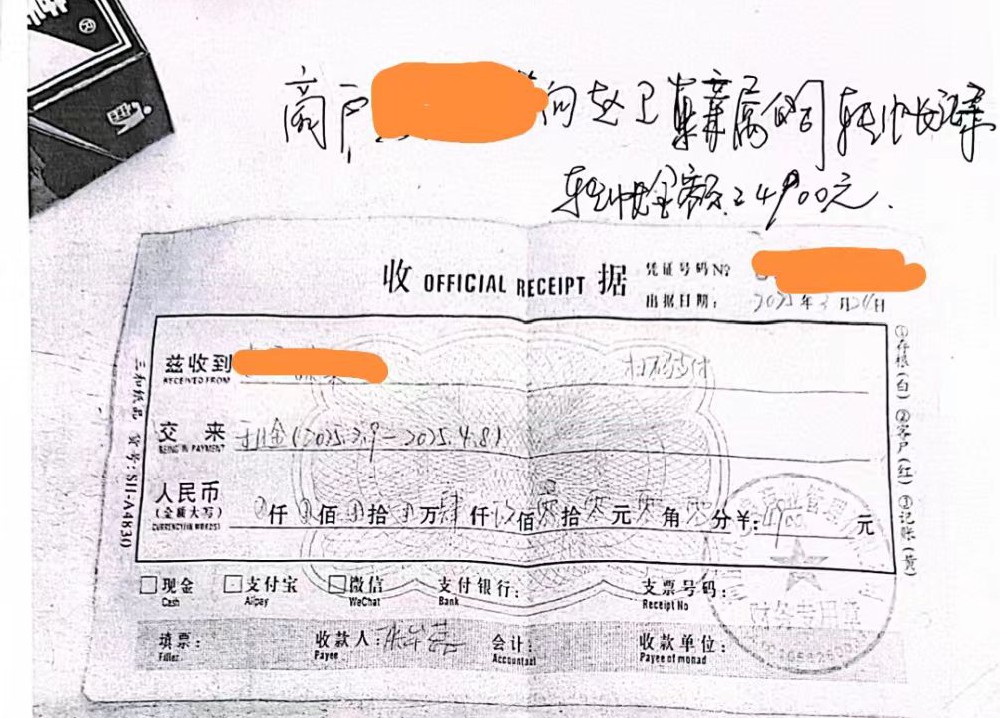 商户
向赵卫
转帐
转帐金额24900元.
收 OFFICIAL RECEIPT 据
凭证号码No
出据日期: 2025年3月24日
兹收到
RECEIVED FROM
扫码支付
交 来 租金(2025.3.9-2025.4.8)
BEING IN PAYMENT
人民币
(金额大写)
CURRENCY(IN WORDS)
仟 佰 拾 万肆仟玖佰零拾零元零角零分¥:4900元
现金 支付宝 微信 支付银行: 支票号码:
Cash Alipay WeChat Bank Receipt No
填票: 收款人: 会计: 收款单位:
Filler Payee Accountant Payee of monad
三和纸品 货号:SH-A4830
①存根(白) ②客户(红) ③记账(黄)
财务专用章